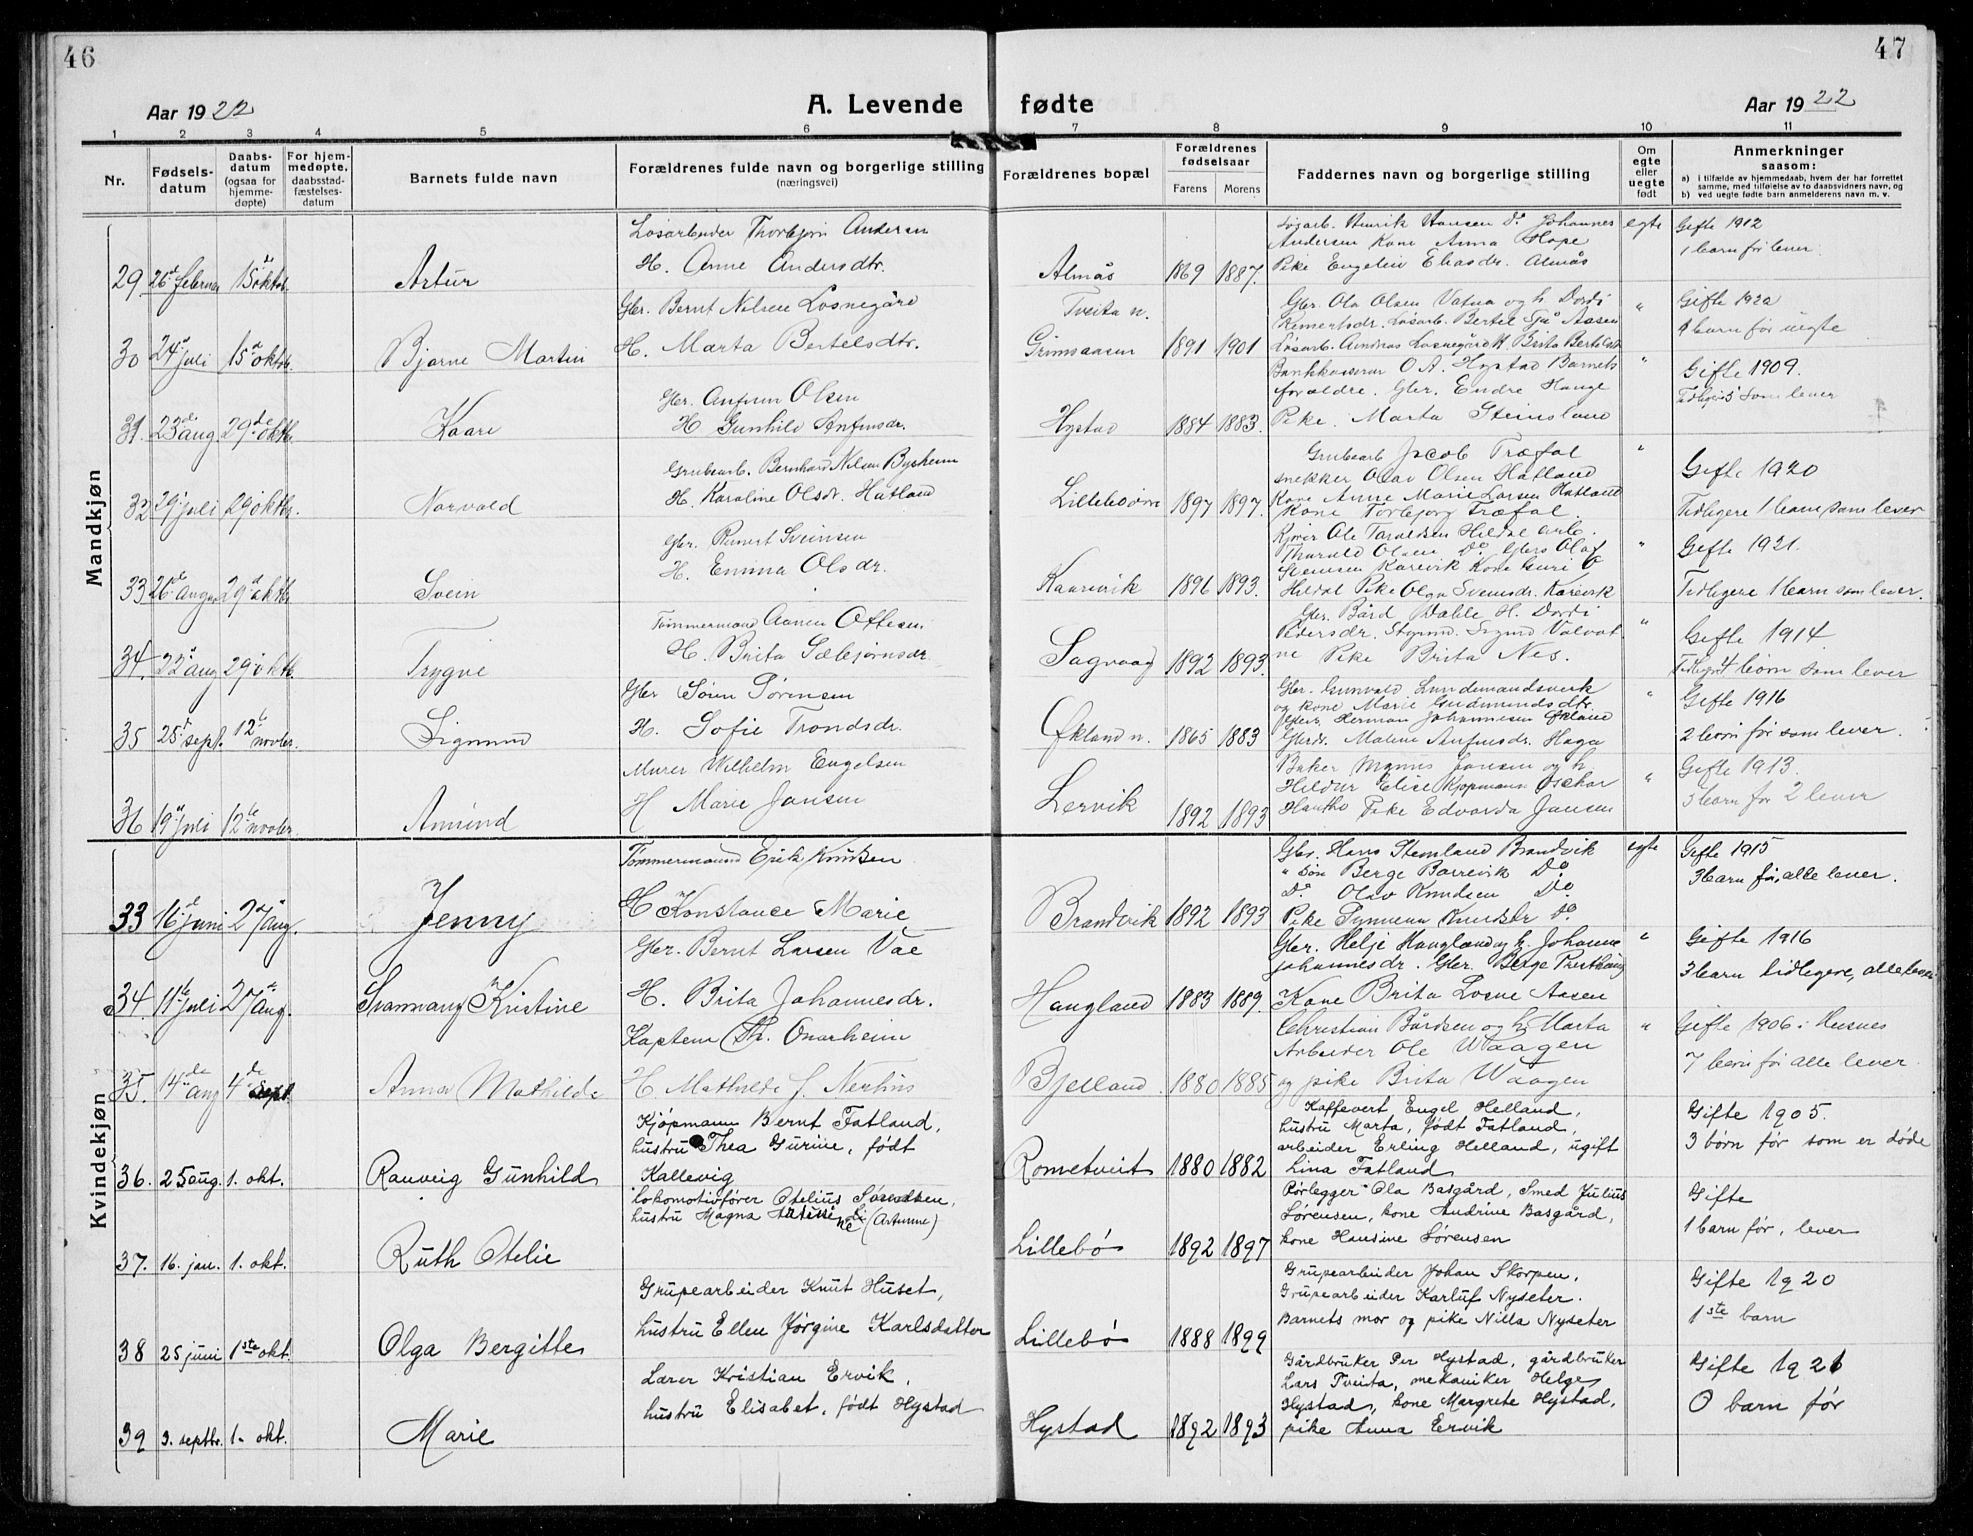 46
47
Aar 1922
A. Levende fødte
Aar 1922
1 2 3 4 5 6 7 8 9 10 11
Nr.
Fødsels-datum
Daabs-datum (ogsaa for hjemme-døpte)
For hjem-medøpte, daabsstad-fæstelses-datum
Barnets fulde navn
Forældrenes fulde navn og borgerlige stilling (næringsvei)
Forældrenes bopæl
Forældrenes fødselsaar
Farens Morens
Faddernes navn og borgerlige stilling
Om egte eller uegte født
Anmerkninger saasom:
a) i tilfælde av hjemmedaab, hvem der har forrettet samme, med tilføielse av to daabsvidners navn, og
b) ved uegte fødte barn anmelderens navn m. v.
Mandkjøn
Løsarbeider Thorbjørn Andersen
H. Anne Andersdtr.
29 26de februar 15de oktob. Artur Almås 1869 1887.
Løsarb. Henrik Hansen Do Johannes
Andersen Kone Anna Hope
Pike Engelin Eliasdr. Almås
egte
Gifte 1912
1 barn før lever.
Gbr. Bernt Nilsen Losnegård
H. Marta Bertelsdtr.
30 24de juli 15de oktob. Bjarne Martin
Tveita n.
Grimsaasen 1891 1901
Gbr. Ola Olsen Vatna og h. Dordi
Remertsdr. Løsarb. Bertel Aasen
Løsarb. Andreas Losnegård H Brita Bertelsdr
"
Gifte 1920
1 barn før uegte
Gbr. Anfinn Olsen
H Gunhild Anfinsdr.
31 23de aug 29de oktbr. Kaare Hystad 1884 1883.
Bankkasserer O A. Hystad Barnets
foreldre. Gbr. Endre Hauge
Pike. Marta Steinsland
"
Gifte 1909.
Tidligere 3 som lever
Grubearb. Bernhard Nilsen Bysheim
H. Karoline Olsdr. Hatland
32 29de juli 29de oktbr. Norvald Lillebø 1897 1897.
Grubearb Jacob Træfal
snekker Olav Olsen Hatland
Kone Anne Marie Larsen Hatland
Kone Torbjørg Træfal.
"
Gifte 1920
Tidligere 1 barn som lever
Gbr. Rimert Sveinsen
H. Emma Olsdr.
33 26de august 29de oktbr Svein Kaarevik 1896 1893.
Ole Taraldsen Hildal arb.
Tharald Olsen Do Gbrs Olaf
Sveinsen Karevik Kone Guri O
Hildal Pike Olga Sveinsdr. Karevik
"
Gifte 1921.
Tidligere 1 barn som lever.
Tømmermand Aamen Ottesen
H. Brita Sæbjørnsdr.
34. 22de aug 29de oktb. Trygve Sagvaag 1892 1893.
Gbr. Bård Dahle H. Dordi
Pedersdr. Styrmd. Sigurd Valvat
ne Pike Brita Nes.
"
Gifte 1914
Tidligere 4 børn som lever
Gbr Søren Sørensen
H. Sofie Trondsdr.
35 25de sept. 12te novbr. Sigmund Økland n. 1865 1883
Gbr. Gunvald Lundemandsverk
og kone Marie Gudmundsdtr.
Gbr. Herman Johannesen Økland
Gbrdr. Malene Anfinsdr. Haga
"
Gifte 1916
2 børn før som lever.
Murer Wilhelm Engelsen
H Marie Jansen
36 19de juli 12te novbr. Amund Lervik 1892 1893
Baker Magnus Jansen og h.
Hildur Elise Kjøpmann Oskar
Pike Edvarda Jansen
"
Gifte 1913.
3 barn før 2 lever
Kvindekjøn
Tømmermand Erik Knutsen
H Konstance Marie
33 16de juni 27de aug. Jenny Brandvik 1892 1893
Gbr. Hans Stemland Brandvik
" søn Berge Borrevik Do
Do Olav Knudsen Do
Pike Synneva Knudsdr Do.
egte
Gifte 1915
3 barn før, alle lever.
Gbr. Bernt Larsen Vae
H. Brita Johannesdr.
34. 11te juli 27de aug. Svannaug Kristine Haugland 1883 1889.
Gbr. Helje Haugland og h. Johanne
Johannesdr. Gbr. Berge Presthaug
Kone Brita Losne Aasen
"
Gifte 1916
3 barn tidligere, alle lever
Kaptein Th. Onarheim
H Mathilde f. Nerhus
35. 14de aug 4de sept. Anna Mathilde Bjelland. 1880 1885
Christian Bårdsen og h. Marta
Arbeider Ole Waagen
og pike Brita Waagen
"
Gifte 1906 i Husnes
7 børn før alle lever
Kjøpmann Bernt Fatland,
hustru Thea Gurine, født
Kallevig
36. 25 aug. 1. okt. Rauveig Gunhild Rometveit 1880 1882
Kaffevert Engel Helland,
hustru Marta, født Fatland,
arbeider Erling Helland, ugift
Lina Fatland
Gifte 1905.
3 børn før som er døde
Lokomotivfører Otelius Sørensen,
hustru Magna
37. 16. jan. 1. okt. Ruth Otelie Lillebø 1892 1897
Rørlegger Ola Basgård, Smed Julius
Sørensen, kone Andrine Basgård,
kone Hansine Sørensen
Gifte
1 barn før, lever
Grupearbeider Knut Huset,
hustru Ellen Jørgine Karlsdatter
38 25 juni 1ste okt. Olga Bergitte Lillebø 1888 1899
Grupearbeider Johan Skorpen,
Grupearbeider Karluf Nyseter.
Barnets mor og pike Nilla Nyseter
Gifte 1920
1ste barn
Lærer Kristian Ervik,
hustru Elisabet, født Hystad
39 3. septbr. 1. okt. Marie Hystad 1892 1893
Gårdbruker Per Hystad, gårdbruker
Lars Tveita, mekaniker Helge
Hystad, kone Margrete Hystad,
pike Anna Ervik
Gifte 1921
0 barn før